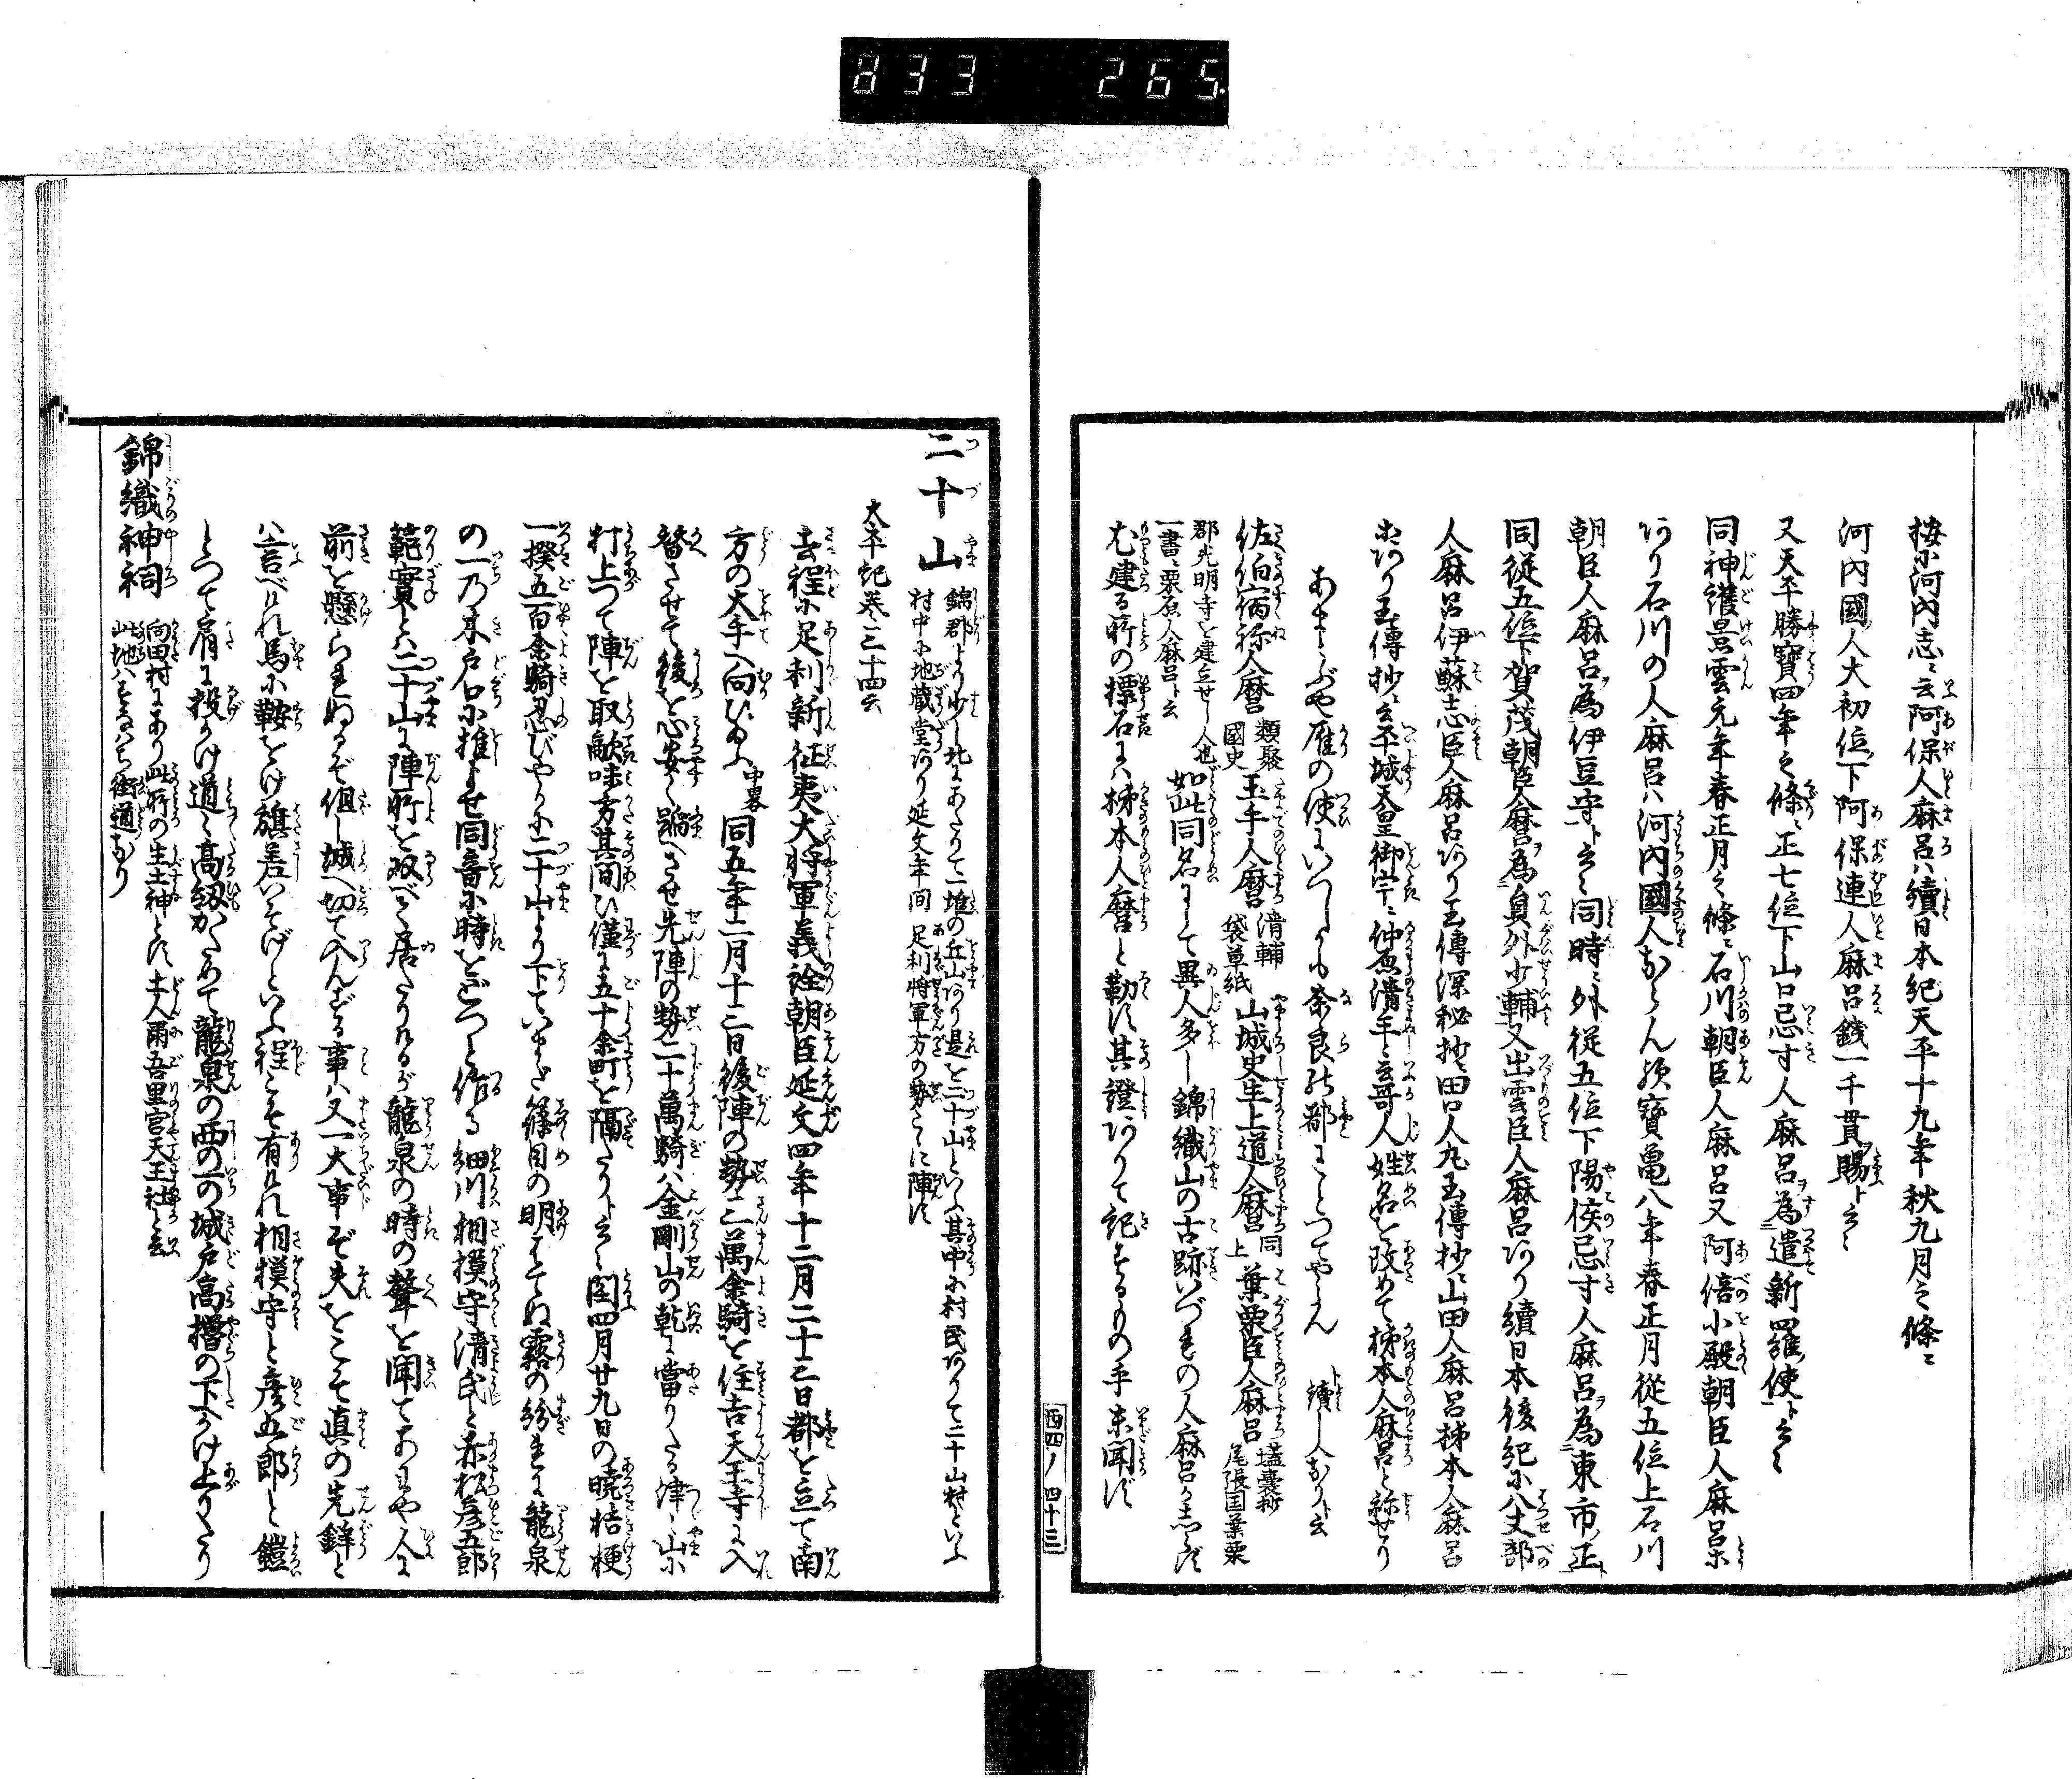 833 265.
按に河内志ニ云阿保人麻呂ハ續日本紀天平十九年秋九月之條ニ
河内國人大初位下阿保連人麻呂錢一千貫賜ト云々
又天平勝寶四年之條ニ正七位下山口忌寸人麻呂ヲ為遣新羅使ト云々
同神護景雲元年春正月之條ニ石川朝臣人麻呂又阿倍小殿朝臣人麻呂等
あり石川の人麻呂ハ河内國人ならん歟寶亀八年春正月從五位上石川
朝臣人麻呂ヲ為伊豆守ト云々同時ニ外從五位下陽侯忌寸人麻呂ヲ為東市ノ正ト
同從五位下賀茂朝臣人麿ヲ為員外少輔又出雲臣人麻呂あり續日本後紀に八丈部
人麻呂伊蘇志臣人麻呂あり玉傳深秘抄ニ田口人丸玉傳抄ニ山田人麻呂柹本人麻呂
とあり玉傳抄ニ云平城天皇御宇ニ仲原清手ト云哥人姓名を改めて柹本人麻呂と称せり
あまとぶや雁の使にいつしかも奈良の都にことつてやらん
ト續し人なりト云
佐伯宿祢人麿 類聚國史 玉手人麿 清輔袋草紙 山城史生上道人麿 同上 葉栗臣人麻呂 壒囊抄 尾張国葉栗
郡光明寺を建立せし人也 一書ニ栗原人麻呂ト云 如此同名にして異人多し錦織山の古跡いづれの人麻呂か志らず
むかし建る所の標石にハ柹本人麿と勒す其證ありて記するもの乎未聞ず
西四ノ四十三
二十山 錦郡より少し北にあたりて一堆の丘山あり是を二十山といふ其中に村民ありて二十山村といふ
村中に地蔵堂あり延文年間足利將軍方の勢こゝに陣す
太平記巻三十四云
去程に足利新征夷大将軍義詮朝臣延文四年十二月二十三日都を立て南
方の大手へ向ひ給ふ 中畧 同五年二月十三日後陣の勢三萬余騎を住吉天王寺に入
替させて後を心安く蹈へさせ先陣の勢二十萬騎ハ金剛山の乾に當りたる津々山に
打上つて陣を取敵味方其間ひ僅に五十余町を隔たりト云々閏四月廿九日の暁桔梗
一揆五百余騎忍びやかに二十山より下ていまだ篠目の明はてぬ霧の紛れに龍泉
の一乃木戸口に推よせ同音に時をどつと作る細川相摸守清氏と赤松彦五郎
範實とハ二十山に陣所を双べて居たりけるが龍泉の時の聲を聞てあはや人に
前を懸られぬるぞ但し城へ切て入んずる事ハ又一大事ぞ夫をこそ真の先鋒と
ハ言べけれ馬に鞍をけ旗差いそげといふ程こそ有けれ相摸守と彦五郎と鎧
とつて肩に投かけ道々高紐かためて龍泉の西の一の城戸高櫓の下へかけ上りたり
錦織神祠 向田村にあり此所の生土神とす土人爾吾里宮天王社と云
此地ハすなはち街道なり